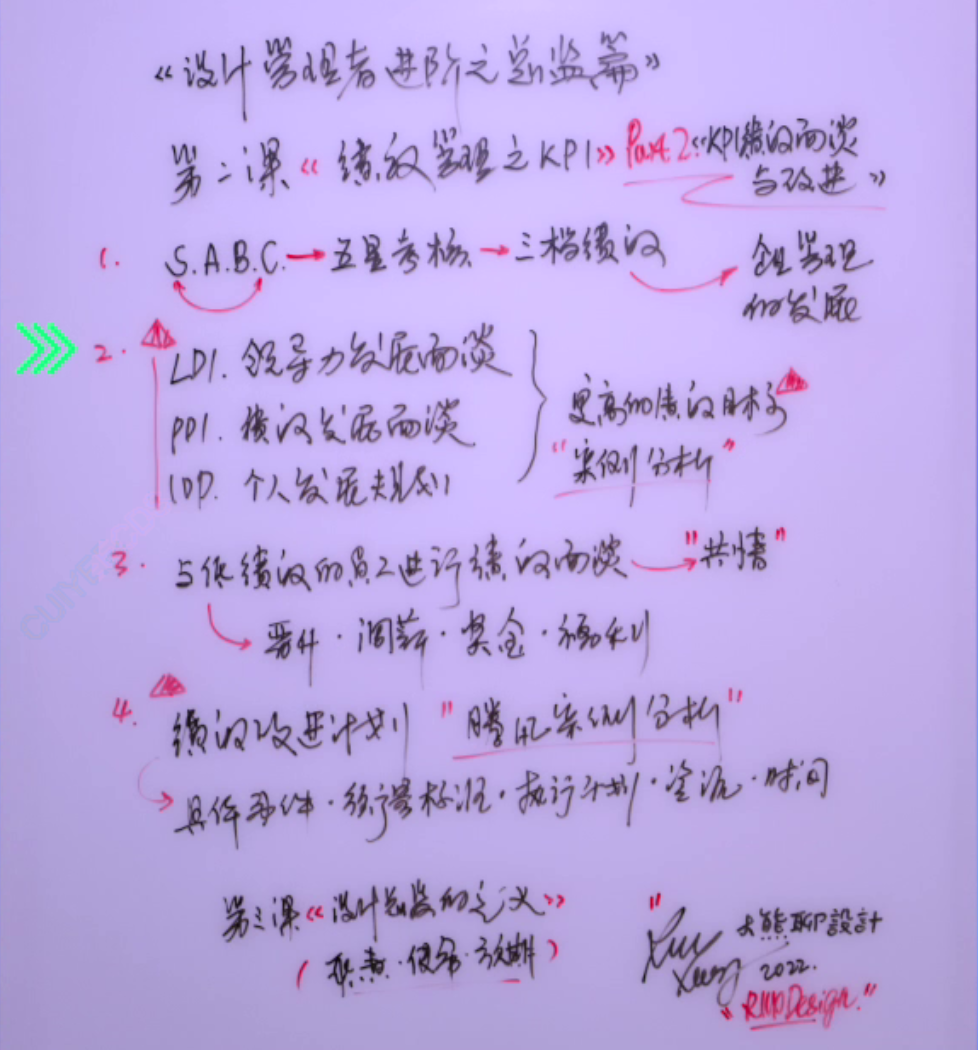 《设计管理者进阶之总监篇》
第二课《绩效管理之KPI》Part 2《KPI绩效面谈
与改进》
1. S.A.B.C. → 五星考核 → 三档绩效 企业管理
的发展
2. LDI. 领导力发展面谈
PDI. 绩效发展面谈
IDP. 个人发展规划
更高的绩效目标
"案例分析"
3. 与低绩效的员工进行绩效面谈 → "共情"
晋升·调薪·奖金·福利
4. 绩效改进计划 "腾讯案例分析"
具体事件·衡量标准·执行计划·资源·时间
第三课《设计总监的定义》
(职责·使命·预期)
大熊聊設計
2022.
"RMDDesign."